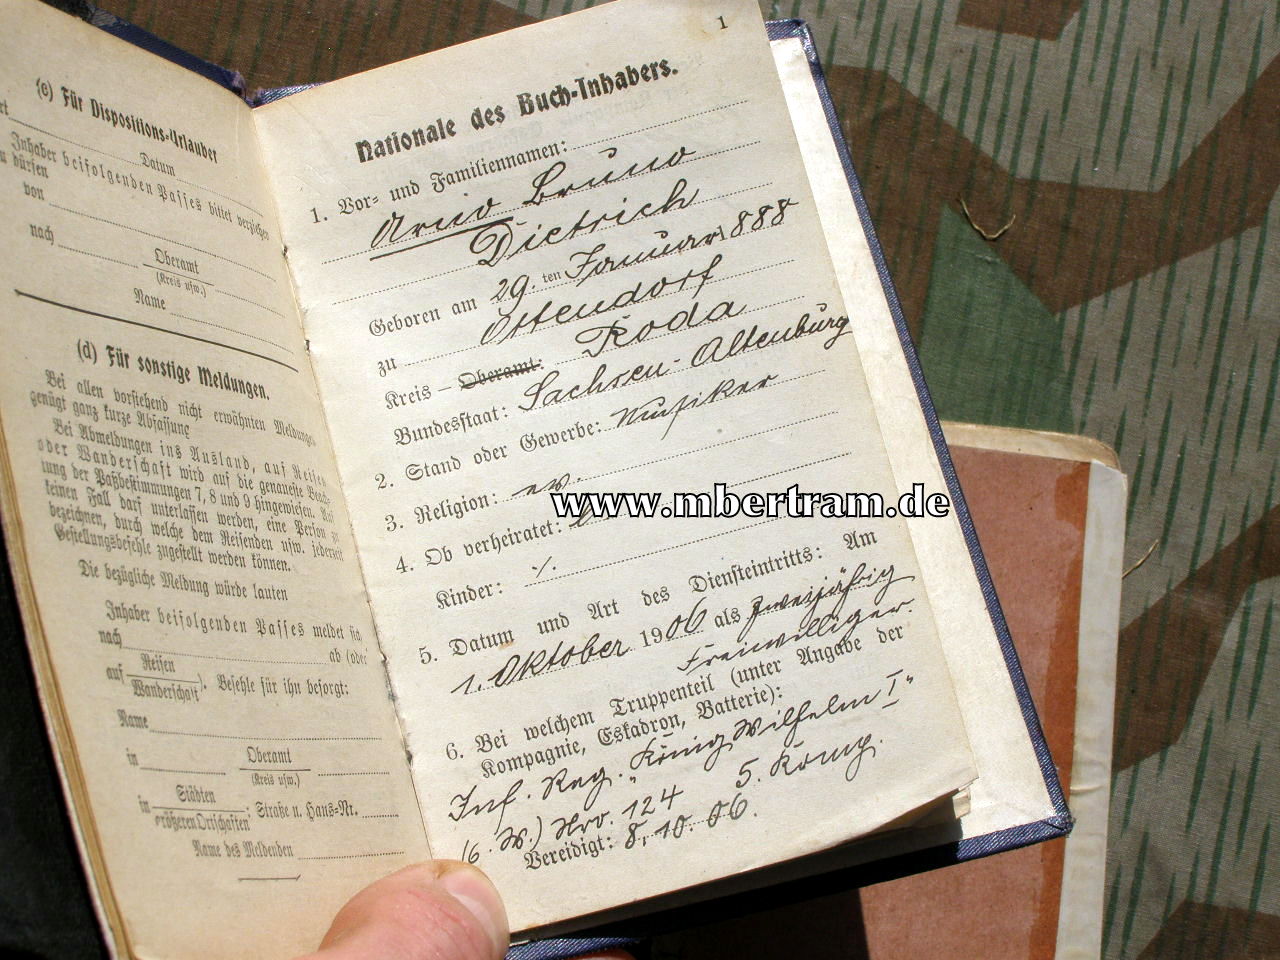 (c) Für Dispositions-Urlauber
Datum
Inhaber beifolgenden Passes bittet verziehen
zu dürfen
von
nach
Oberamt
(Kreis usw.)
Name
(d) Für sonstige Meldungen.
Bei allen vorstehend nicht erwähnten Meldungen
genügt ganz kurze Abfassung
Bei Abmeldungen ins Ausland, auf Reisen
oder Wanderschaft wird auf die genaueste Beach-
tung der Paßbestimmungen 7, 8 und 9 hingewiesen. Auf
keinen Fall darf unterlassen werden, eine Person zu
bezeichnen, durch welche dem Reisenden usw. jederzeit
Gestellungsbefehle zugestellt werden können.
Die bezügliche Meldung würde lauten
Inhaber beifolgenden Passes meldet sich
nach ab (oder
auf Reisen
Wanderschaft). Befehle für ihn besorgt:
Name
in Oberamt
(Kreis usw.)
in Städten
größeren Ortschaften: Straße u. Haus-Nr.
Name des Meldenden
1
Nationale des Buch-Inhabers.
1. Vor- und Familiennamen:
Arno Bruno
Dietrich
Geboren am 29.ten Januar 1888
zu Ottendorf
Kreis – Oberamt: Roda
Bundesstaat: Sachsen-Altenburg
2. Stand oder Gewerbe: Musiker
3. Religion: ev.
4. Ob verheiratet:
Kinder: ./.
5. Datum und Art des Diensteintritts: Am
1. Oktober 1906 als zweijährig
Freiwilliger.
6. Bei welchem Truppenteil (unter Angabe der
Kompagnie, Eskadron, Batterie):
Inf. Reg. „König Wilhelm I“
(6. W.) Nro. 124 5. Komp.
Vereidigt: 8.10.06.
www.mbertram.de